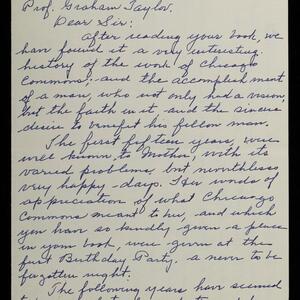 Prof. Graham Taylor.
Dear Sir:
After reading your book, we
have found it a very interesting
history of the work of Chicago
Commons: and the accomplishment
of a man, who not only had a vision,
but the faith in it and the sincere
desire to benefit his fellow man.
The first fifteen years, were
well known to Mother, with its
varied problems, but nevertheless
very happy days. Her words of
appreciation of what Chicago
Commons meant to her, and which
you have so kindly given a place
in your book, were given at the
first Birthday Party. a never to be
forgotten night.
The following years have seemed